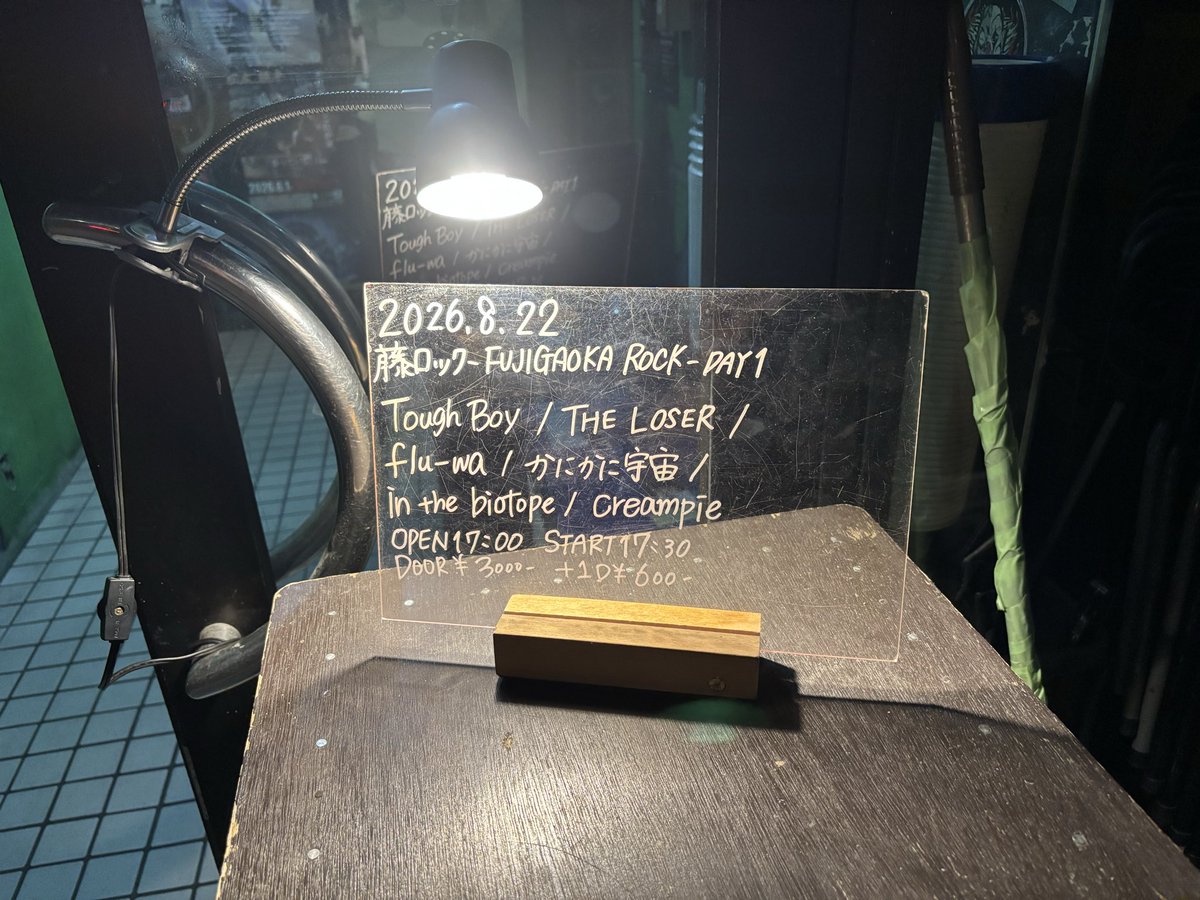 2026.8.22
藤ロック-FUJIGAOKA ROCK-DAY1
Tough Boy / THE LOSER /
flu-wa / かにかに宇宙 /
in the biotope / Creampie
OPEN17:00 START17:30
DOOR¥3000- +1D¥600-